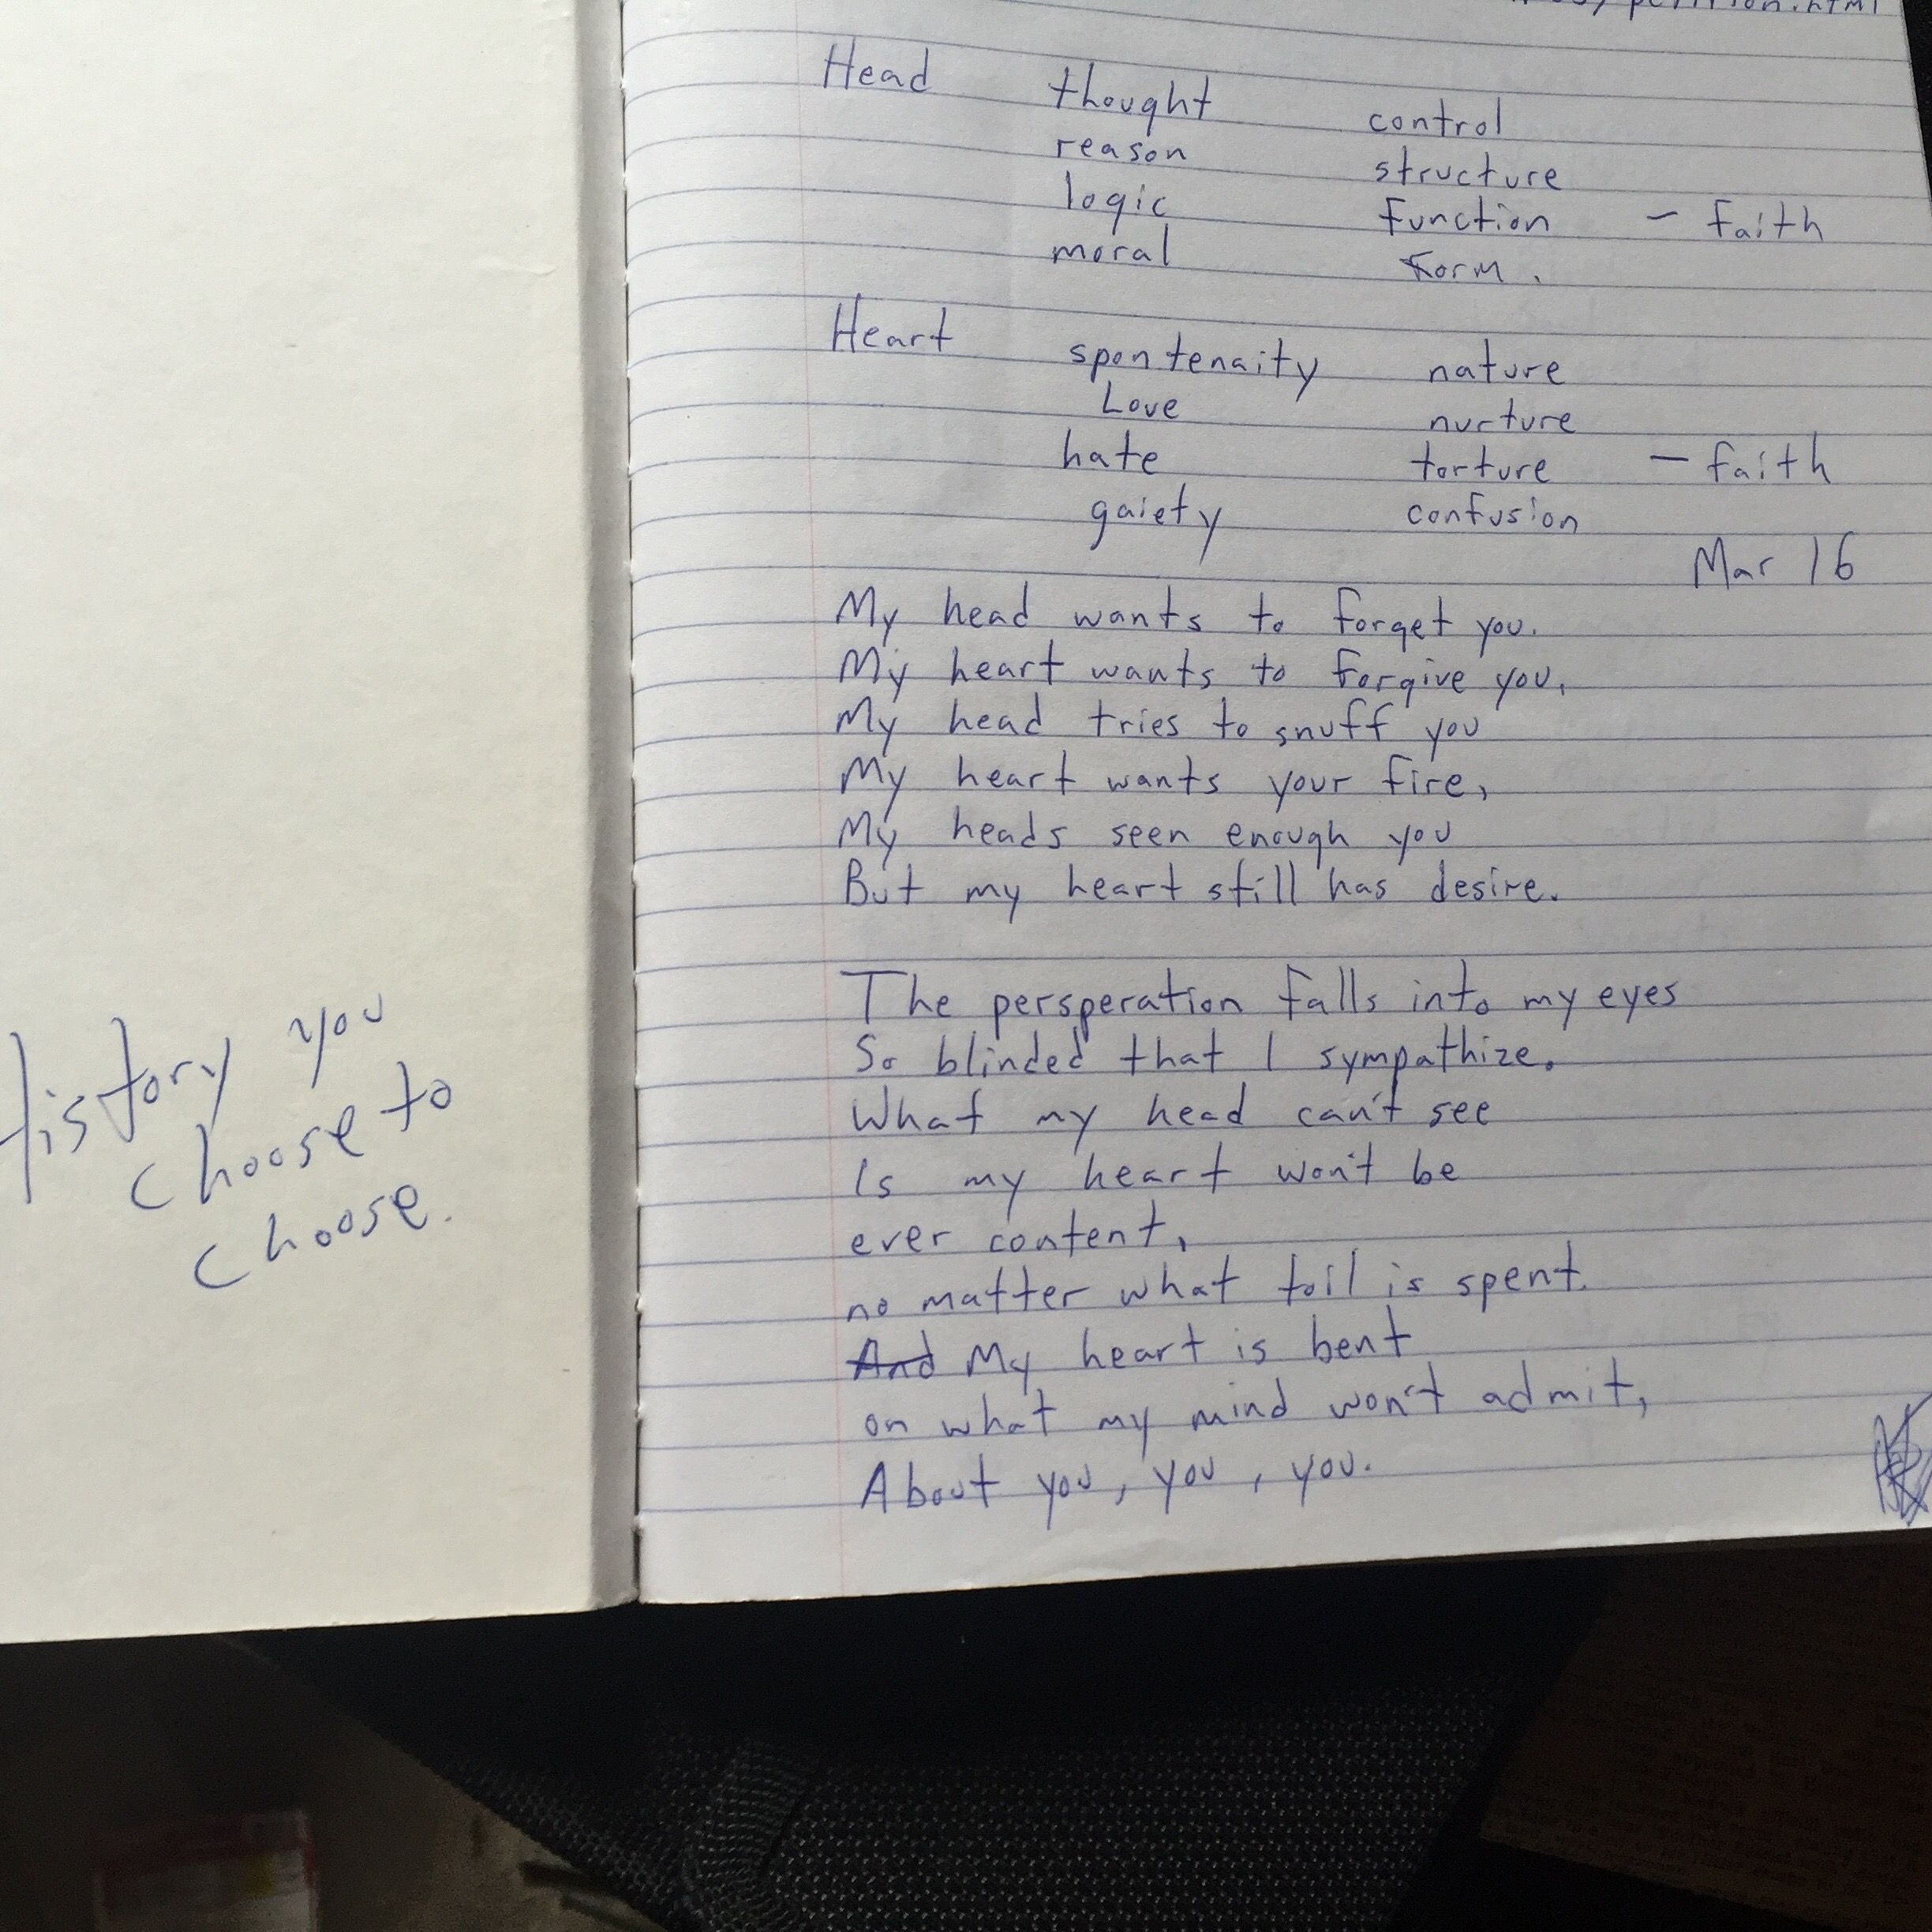 History you
choose to
choose.
petition.html
Head thought control
reason structure
logic function - faith
moral Form.
Heart spontenaity nature
Love nurture
hate torture - faith
gaiety confusion
Mar 16
My head wants to forget you.
My heart wants to forgive you,
My head tries to snuff you
My heart wants your fire,
My heads seen enough you
But my heart still has desire.
The persperation falls into my eyes
So blinded that I sympathize.
What my head can't see
Is my heart won't be
ever content,
no matter what toil is spent.
And My heart is bent
on what my mind won't admit,
About you, you, you.